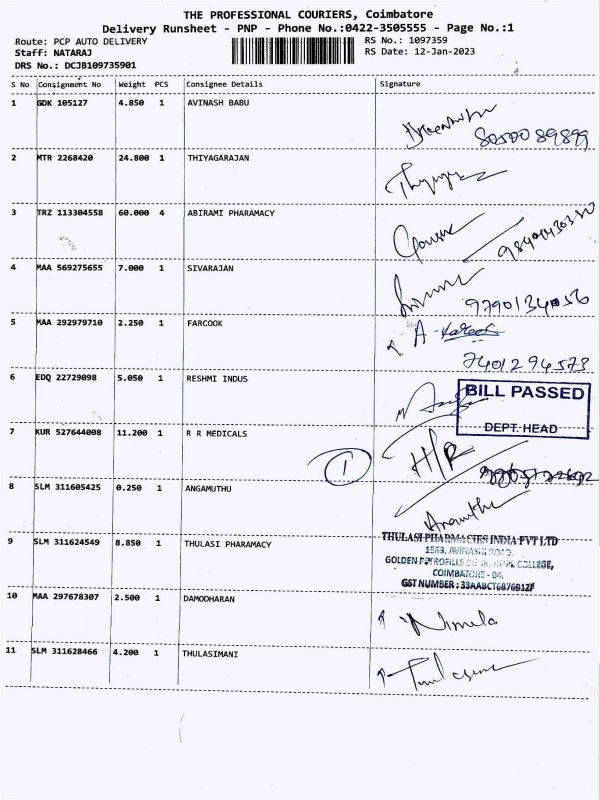 THE PROFESSIONAL COURIERS, Coimbatore
Delivery Runsheet - PNP - Phone No.:0422-3505555 - Page No.:1
Route: PCP AUTO DELIVERY
RS No.: 1097359
Staff: NATARAJ
RS Date: 12-Jan-2023
DRS No.: DCJB109735901
S No Consignment No Weight PCS Consignee Details Signature
1 GDK 105127 4.850 1 AVINASH BABU
8050089899
2 MTR 2268420 24.800 1 THIYAGARAJAN
3 TRZ 113304558 60.000 4 ABIRAMI PHARAMACY
4 MAA 569275655 7.000 1 SIVARAJAN
9790134056
5 MAA 292979710 2.250 1 FARCOOK
7401294573
6 EDQ 22729098 5.050 1 RESHMI INDUS
BILL PASSED
DEPT. HEAD
7 KUR 527644008 11.200 1 R R MEDICALS
1 H/R
8 SLM 311605425 0.250 1 ANGAMUTHU
9 SLM 311624549 8.850 1 THULASI PHARAMACY
THULASI PHARMACIES INDIA PVT LTD
COLLEGE,
COIMBATORE - 04.
GST NUMBER : 33AABCT6876B1ZF
10 MAA 297678307 2.500 1 DAMODHARAN
Nimela
11 SLM 311628466 4.200 1 THULASIMANI